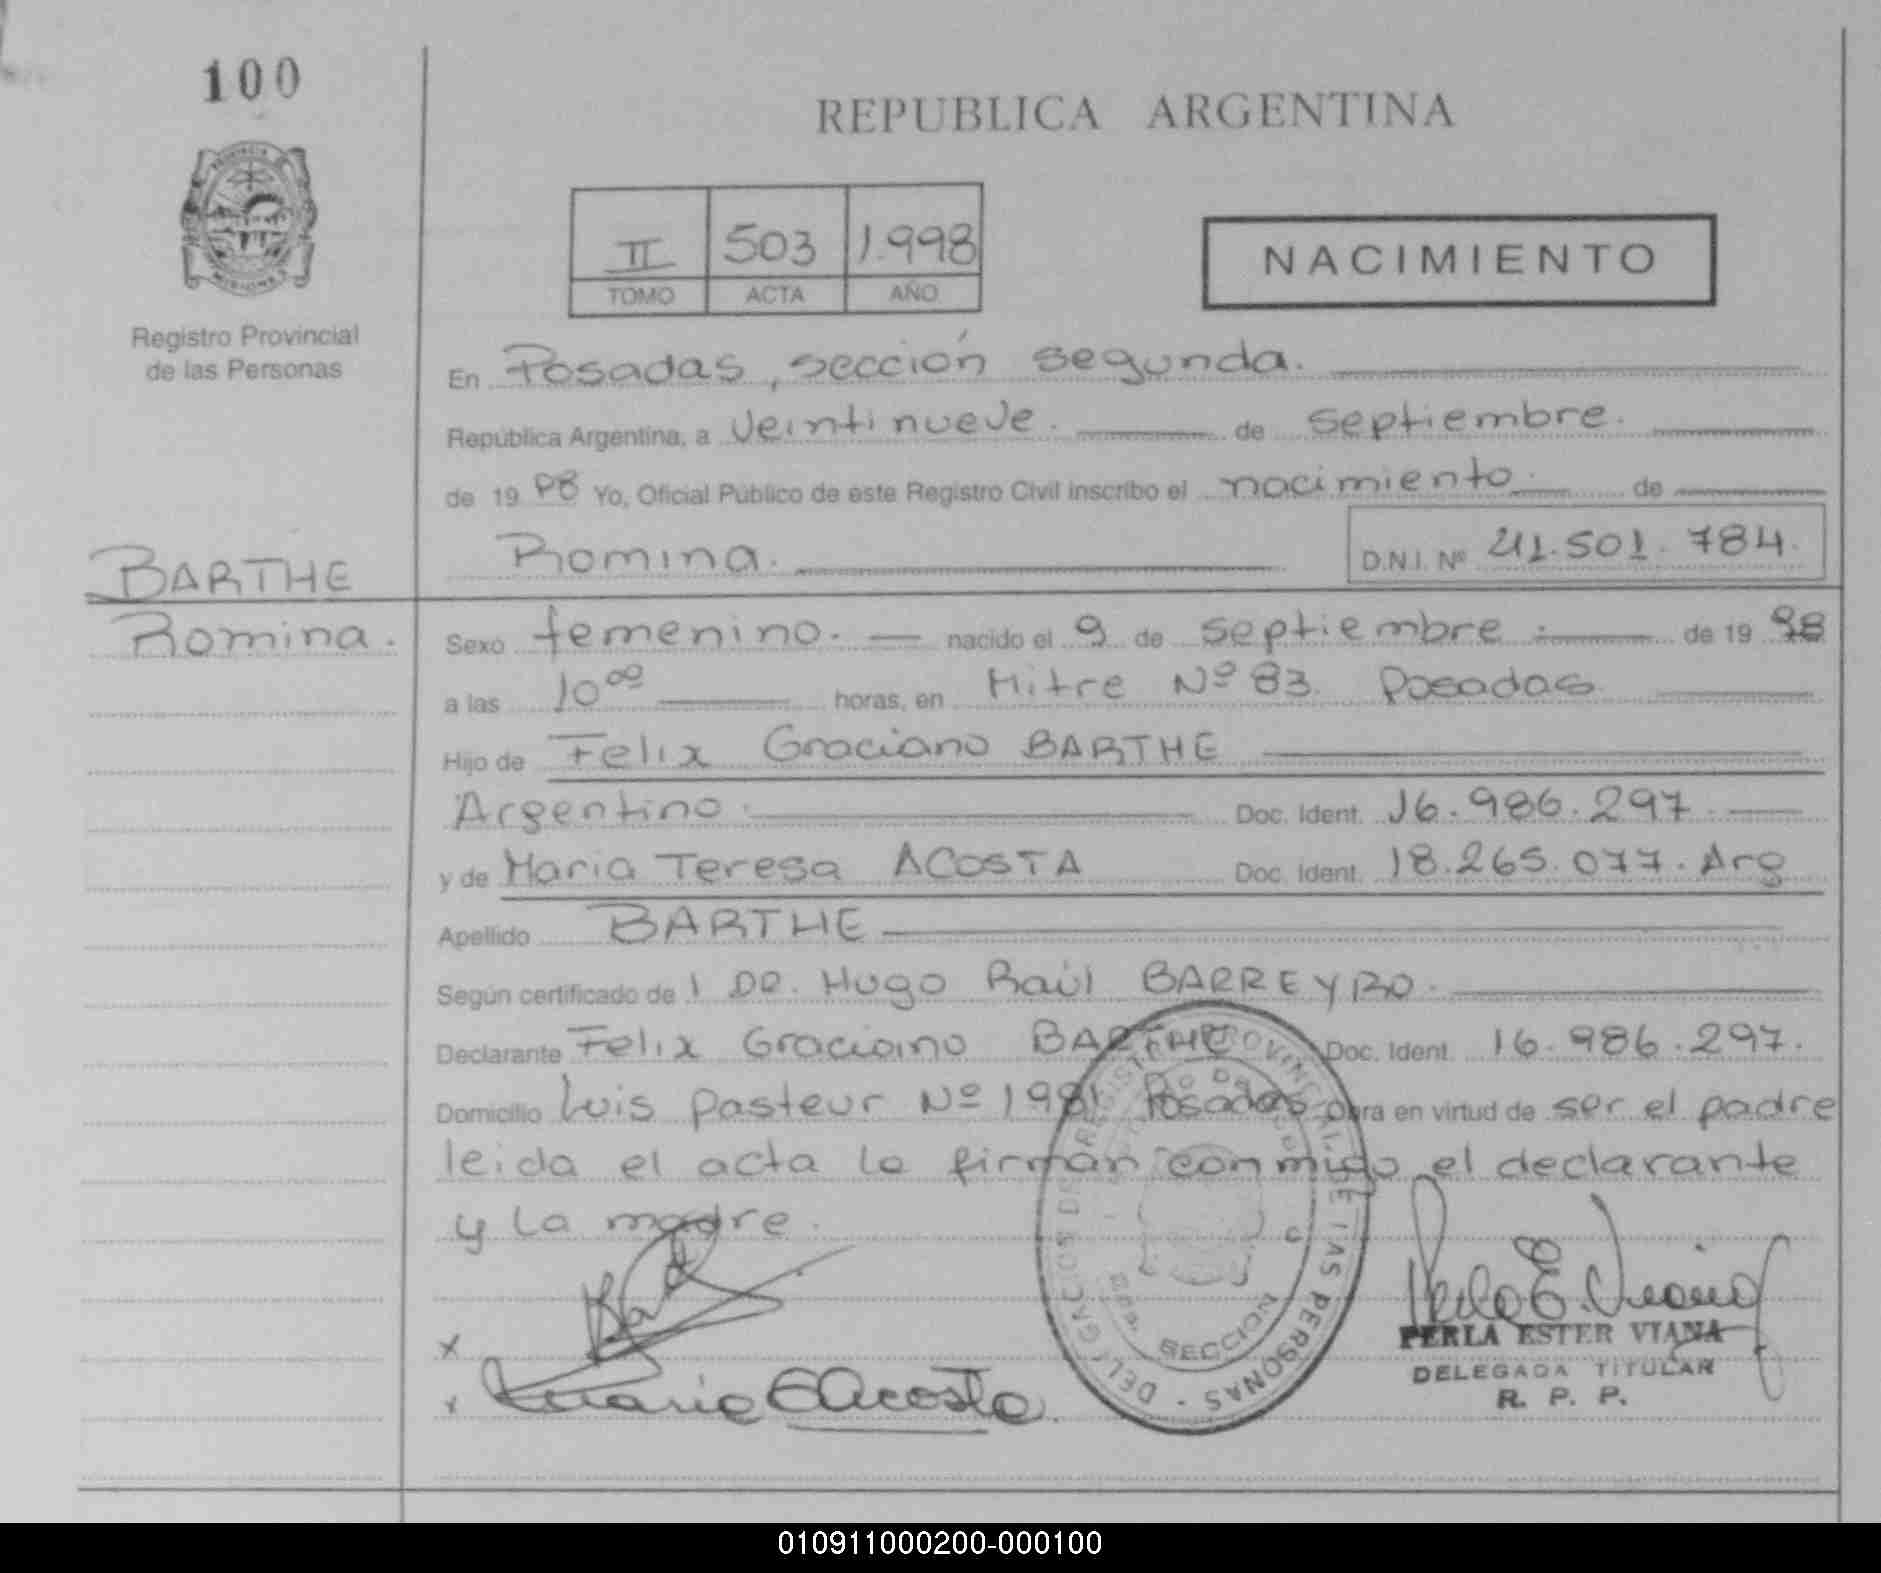 100
REPUBLICA ARGENTINA
PROVINCIA DE MISIONES
Registro Provincial
de las Personas
II 503 1.998
TOMO ACTA AÑO
NACIMIENTO
En Posadas, sección segunda.
República Argentina, a veintinueve. de septiembre.
de 19 98 Yo, Oficial Público de este Registro Civil inscribo el nacimiento. de
Romina. D.N.I. Nº 41.501.784.
BARTHE
Romina.
Sexo femenino. nacido el 9 de septiembre. de 19 98
a las 10ºº horas, en Mitre Nº 83 Posadas
Hijo de Felix Graciano BARTHE
Argentino. Doc. Ident. 16.986.297.
y de Maria Teresa ACOSTA Doc. Ident. 18.265.077. Arg
Apellido BARTHE
Según certificado de l DR. Hugo Raúl BARREYRO.
Declarante Felix Graciano BARTHE Doc. Ident. 16.986.297.
Domicilio Luis Pasteur Nº 1981 Posadas obra en virtud de ser el padre
leida el acta la firman conmigo el declarante
y la madre.
DELEGACIOS DE REGISTRO PROVINCIAL DE LAS PERSONAS
SECCION
x
x Maria E Acosta
Perla E. Viana
PERLA ESTER VIANA
DELEGADA TITULAR
R. P. P.
010911000200-000100